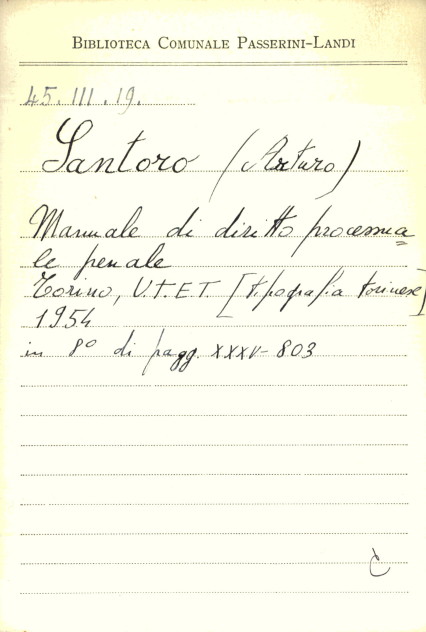 BIBLIOTECA COMUNALE PASSERINI-LANDI
45. III. 19.
Santoro (Arturo)
Manuale di diritto processua=
le penale
Torino, U.T.E.T. [tipografia torinese]
1954
in 8° di pagg. XXXV-803
C